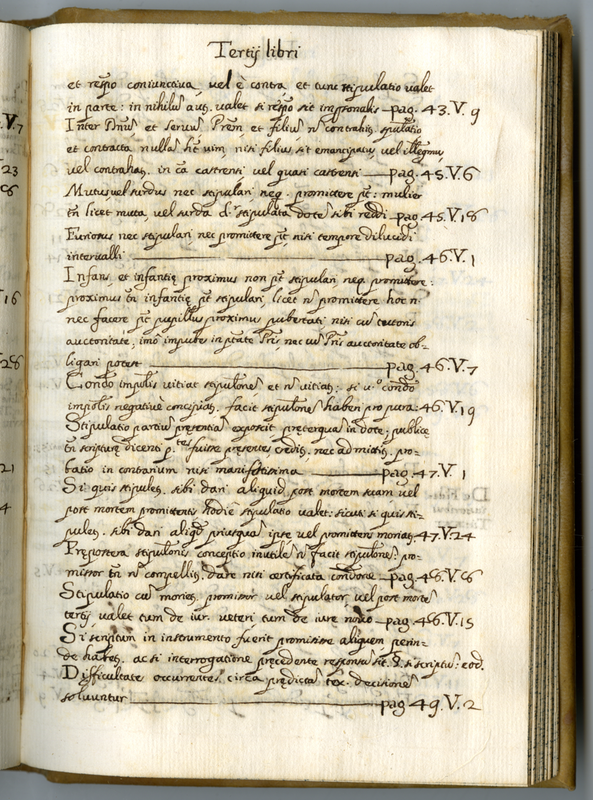 Tertij libri
et respõ coniunctiva, vel è contra et tunc stipulatio valet
in parte: in nihilũ aut. valet si respõ sit impersonalis pag. 43.V.9
Inter Dnũ et servũ Prem et filiũ n contrahit. spulatio
et contracta nullã hẽt vim, nisi filius sit emancipatus, vel illegmus,
vel contrahat. in cã castrensi vel quasi castrensi pag. 45.V.6
Mutus, vel surdus nec stipulari neq. promittere pẽt: mulier
tñ licet muta, vel surda dr stipulata dotẽ sibi reddi pag 45.V.18
Furiosus nec stipulari nec promittere pẽt, nisi tempore dilucidi
intervalli pag. 46.V.1
Infans, et infantię proximus non pẽt stipulari neq. promittere:
proximus tñ infantię pẽt stipulari, licet n promittere hoc n
nec facere pẽt pupillus proximus pubertati nisi cũ tutoris
auctoritate, imò impubes in ptate Pris, nec cũ Pris auctoritate ob-
ligari potest pag. 46.V.7
Condo impblis vitiat stipulone et n vitiat: si v.o condo
impblis negativè concipiat. facit stipulone haberi pro pura: 46.V.19
Stipulatio partiũ pręsentia exposcit pręterqua in dote: publicę
tñ scripturę dicenti p.tes fuisse pręsentes credit. nec admittit. pro-
batio in contrarium nisi manifestissima pag. 47.V.1
Si quis stipulet. sibi dari aliquid post mortem suam vel
post mortem promittentis hodiè stipulatio valet: sicuti si quis sti-
pulet. sibi dari aliqd priusqua ipse vel promittens moriat. 47.V.24
Prępostera stipulonis conceptio inutile n facit stipulone: pro-
missor tñ n compellit. dare nisi certificata condone pag. 48.V.8
Stipulatio cũ moriet. promissor vel stipulator, vel post morte
tertij valet tum de iur. veteri tum de iure novo pag. 48.V.15
Si scriptum in instrumento fuerit promisisse aliquem perin-
de habet. ac si interrogatione pręcedente responsũ sit. §. si scriptũ: eod.
Difficultate occurrentes circa prędictã tex. decisione
solvuntur pag 49.V.2